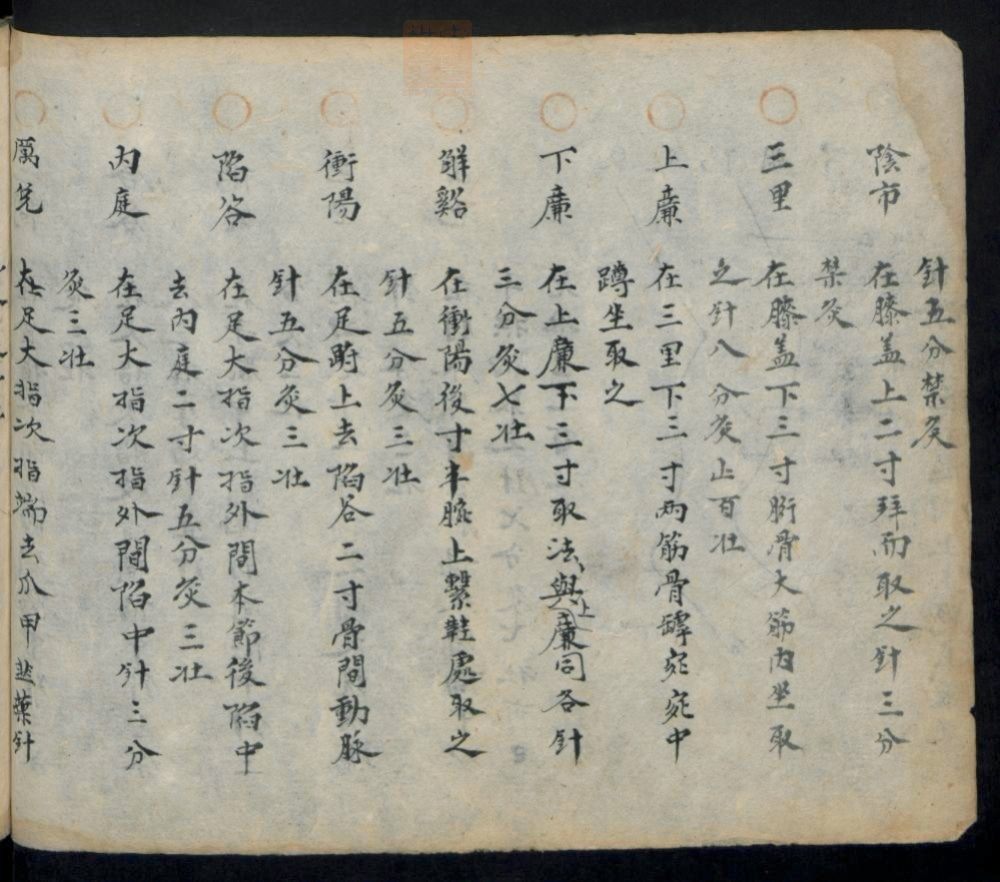 針五分禁灸
陰市 在膝盖上二寸拜而取之針三分
禁灸
三里 在膝盖下三寸胻骨大筋内坐取
之針八分灸止百壯
上廉 在三里下三寸两筋骨罅宛宛中
蹲坐取之
下廉 在上廉下三寸取法與上廉同各針
三分灸七壯
觧谿 在衝陽後寸半腕上繫鞋處取之
針五分灸三壯
衝陽 在足跗上去陷谷二寸骨間動脉
針五分灸三壯
陷谷 在足大指次指外間本節後陷中
去内庭二寸針五分灸三壯
内庭 在足大指次指外間陷中針三分
灸三壯
厲兌 在足大指次指端去爪甲韮葉針